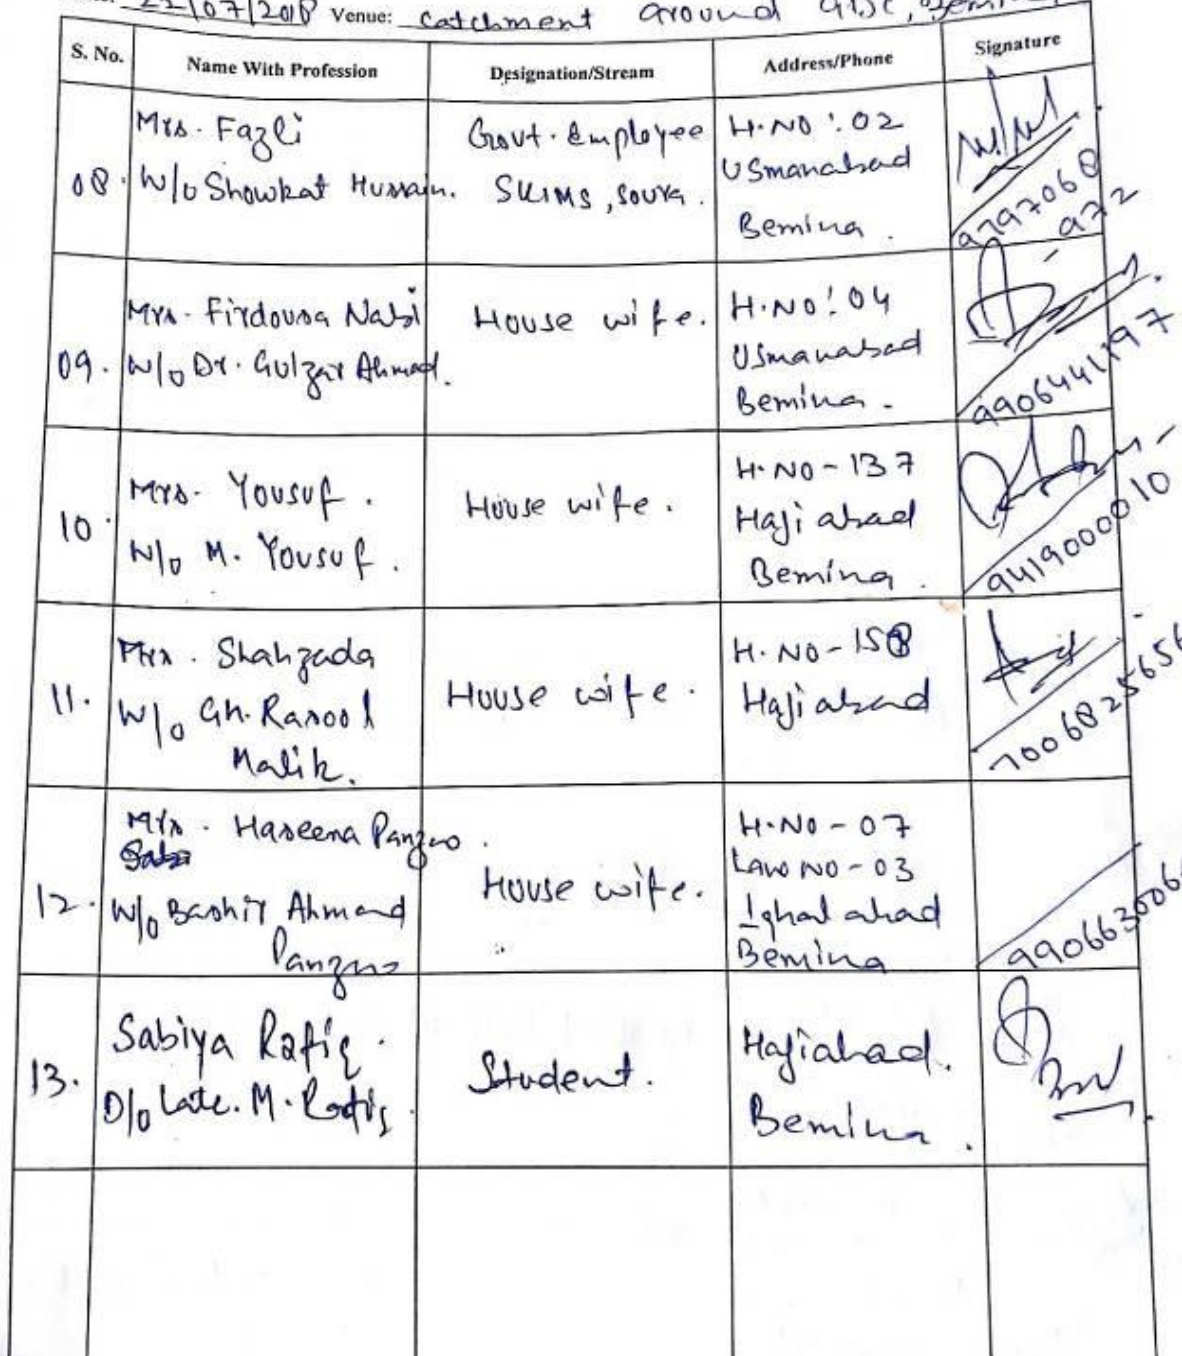 22/07/2018 Venue: Catchment around GDC, Bemina
S. No. Name With Profession Designation/Stream Address/Phone Signature
08. Mrs. Fazli
W/o Showkat Hussain.
Govt. Employee
SKIMS, Soura.
H.NO: 02
Usmanabad
Bemina.
9797068
-972
09. Mrs. Firdousa Nabi
W/o Dr. Gulzar Ahmad.
House wife.
H.NO: 04
Usmanabad
Bemina.
9906441197
10. Mrs. Yousuf.
W/o M. Yousuf.
House wife.
H.NO-137
Haji abad
Bemina.
9419000010
11. Mrs. Shahzada
W/o Gh. Rasool
Malik.
House wife.
H.NO-158
Haji abad
7006825656
12. Mrs. Haseena Panzoo.
W/o Bashir Ahmad
Panzoo
House wife.
H.NO-07
Lane NO-03
Iqbal abad
Bemina
990663006
13. Sabiya Rafiq.
D/o Late. M. Rafiq
Student.
Hajiabad.
Bemina.